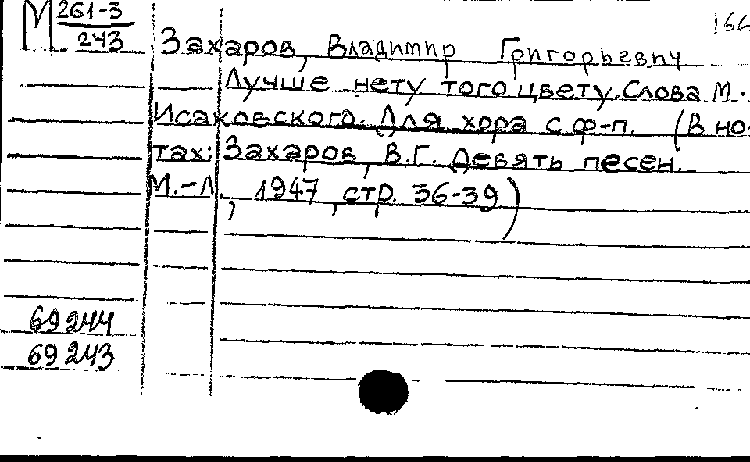 М 261-3
243
Захаров, Владимир Григорьевич
Лучше нету того цвету. Слова М.
Исаковского. Для хора с ф-п. (В но-
тах: Захаров, В.Г. Девять песен.
М.-Л., 1947, стр. 36-39)
69244
69243